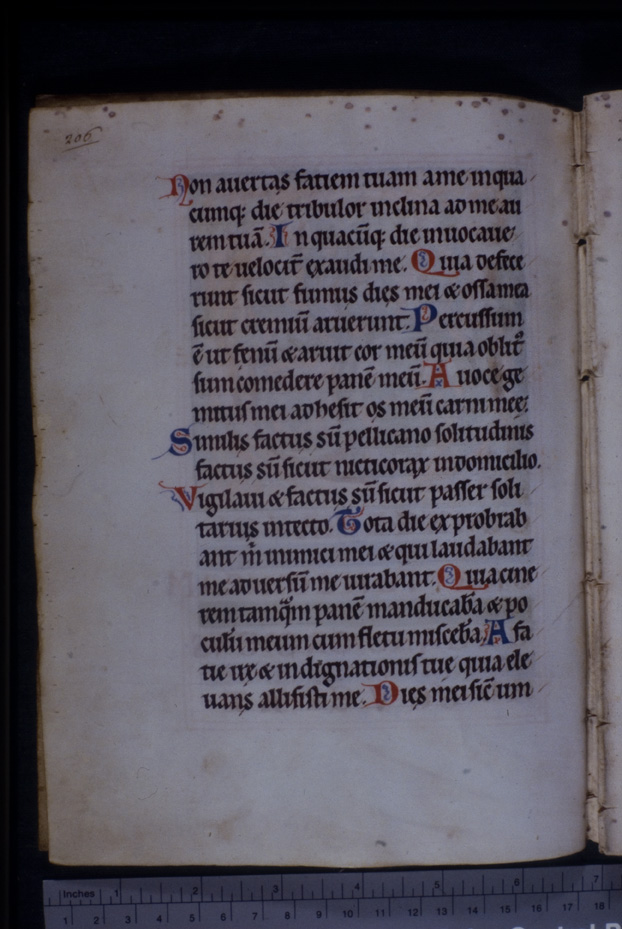 206
Non auertas faciem tuam a me in qua
cumq; die tribulor inclina ad me au
rem tuā. In quacūq; die inuocaue
ro te uelocit̄ exaudi me. Quia defece
runt sicut fumus dies mei & ossa mea
sicut cremiū aruerunt. Percussum
ē ut fenū & aruit cor meū quia oblit᷒
sum comedere panē meū. A uoce ge
mitus mei adhesit os meū carni mee.
Similis factus sū pellicano solitudinis
factus sū sicut nicticorax in domicilio.
Vigilaui & factus sū sicut passer soli
tarius in tecto. Tota die exprobrab
ant m̄ inimici mei & qui laudabant
me aduersū me iurabant. Quia cine
rem tamq̄m panē manducab̄a & po
culū meum cum fletu misceb̄a. A fa
cie ire & indignationis tue quia ele
uans allisisti me. Dies mei sic̄ um
Inches 1 2 3 4 5 6 7
1 2 3 4 5 6 7 8 9 10 11 12 13 14 15 16 17 18